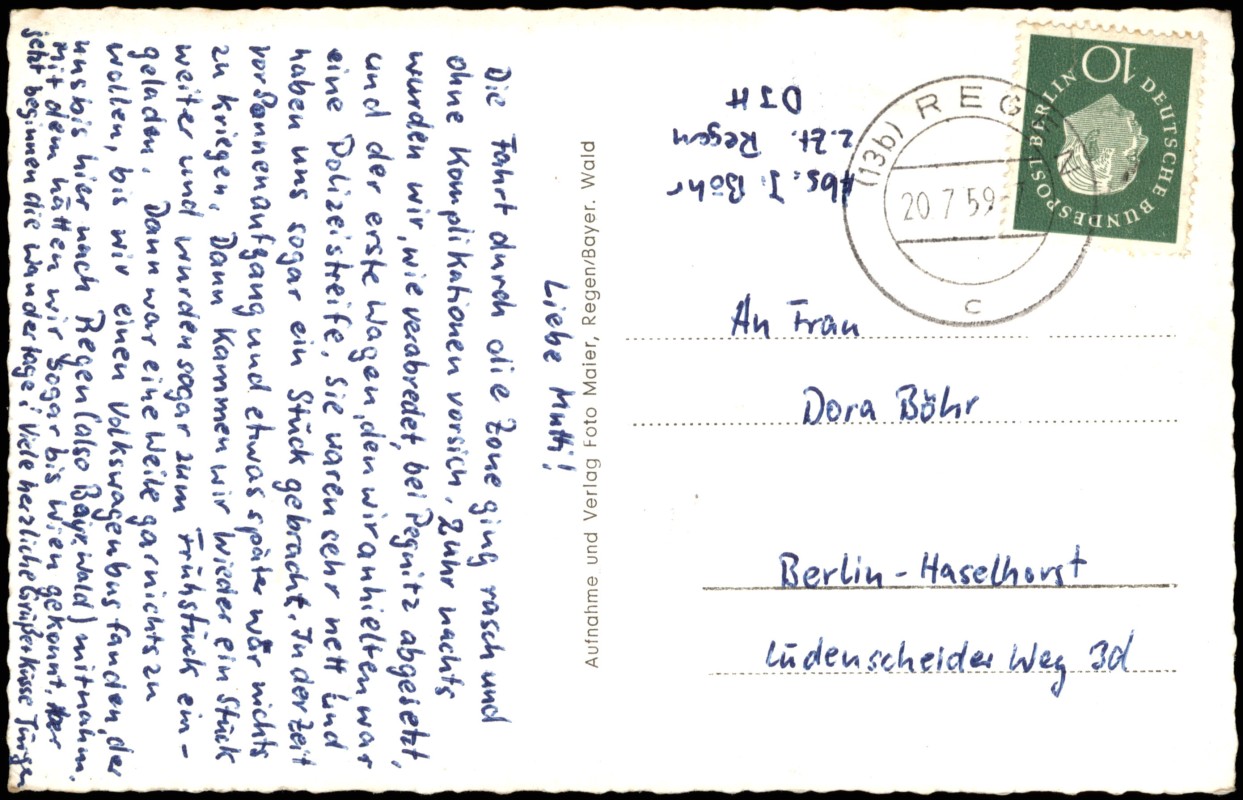 Liebe Mutti!
Die Fahrt durch die Zone ging rasch und
ohne Komplikationen vorsich, 2uhr nachts
wurden wir, wie verabredet, bei Pegnitz abgesetzt,
und der erste Wagen, den wir anhielten war
eine Polizeistreife. sie waren sehr nett und
haben uns sogar ein Stück gebracht. In der Zeit
vor Sonnenaufgang und etwas später war nichts
zu kriegen. Dann kammen wir wieder ein Stück
weiter und wurden sogar zum Frühstück ein-
geladen. Dann war eine Weile garnichts zu
wollen, bis wir einen Volkswagenbus fanden, der
uns bis hier nach Regen (also Bayr. wald) mitnahm.
mit dem hätten wir sogar bis Wien gekonnt. Aber
jetzt beginnen die wandertage! Viele herzliche Grüße + Küsse Jürgen
Aufnahme und Verlag Foto Maier, Regen/Bayer. Wald
Abs. J. Böhr
z.Zt. Regen
DJH
(13b) REGEN
20 7 59
c
10 DEUTSCHE BUNDESPOST BERLIN
An Frau
Dora Böhr
Berlin-Haselhorst
Lüdenscheider Weg 3d